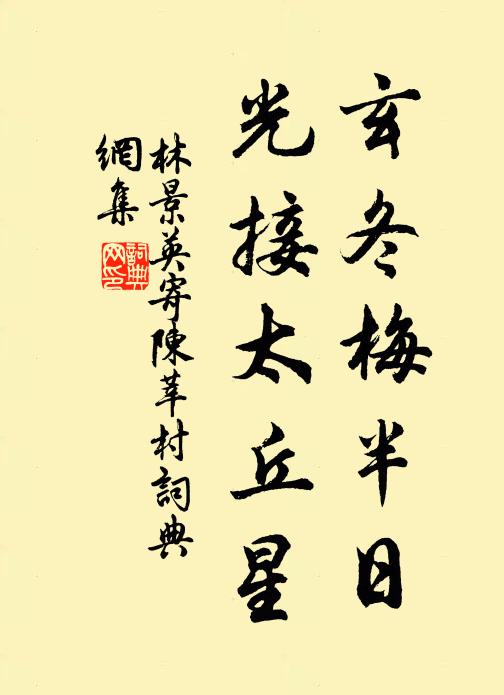 玄冬梅半日
光接太丘星
林景英寄陳莘村詞典
網集
詞典
网印